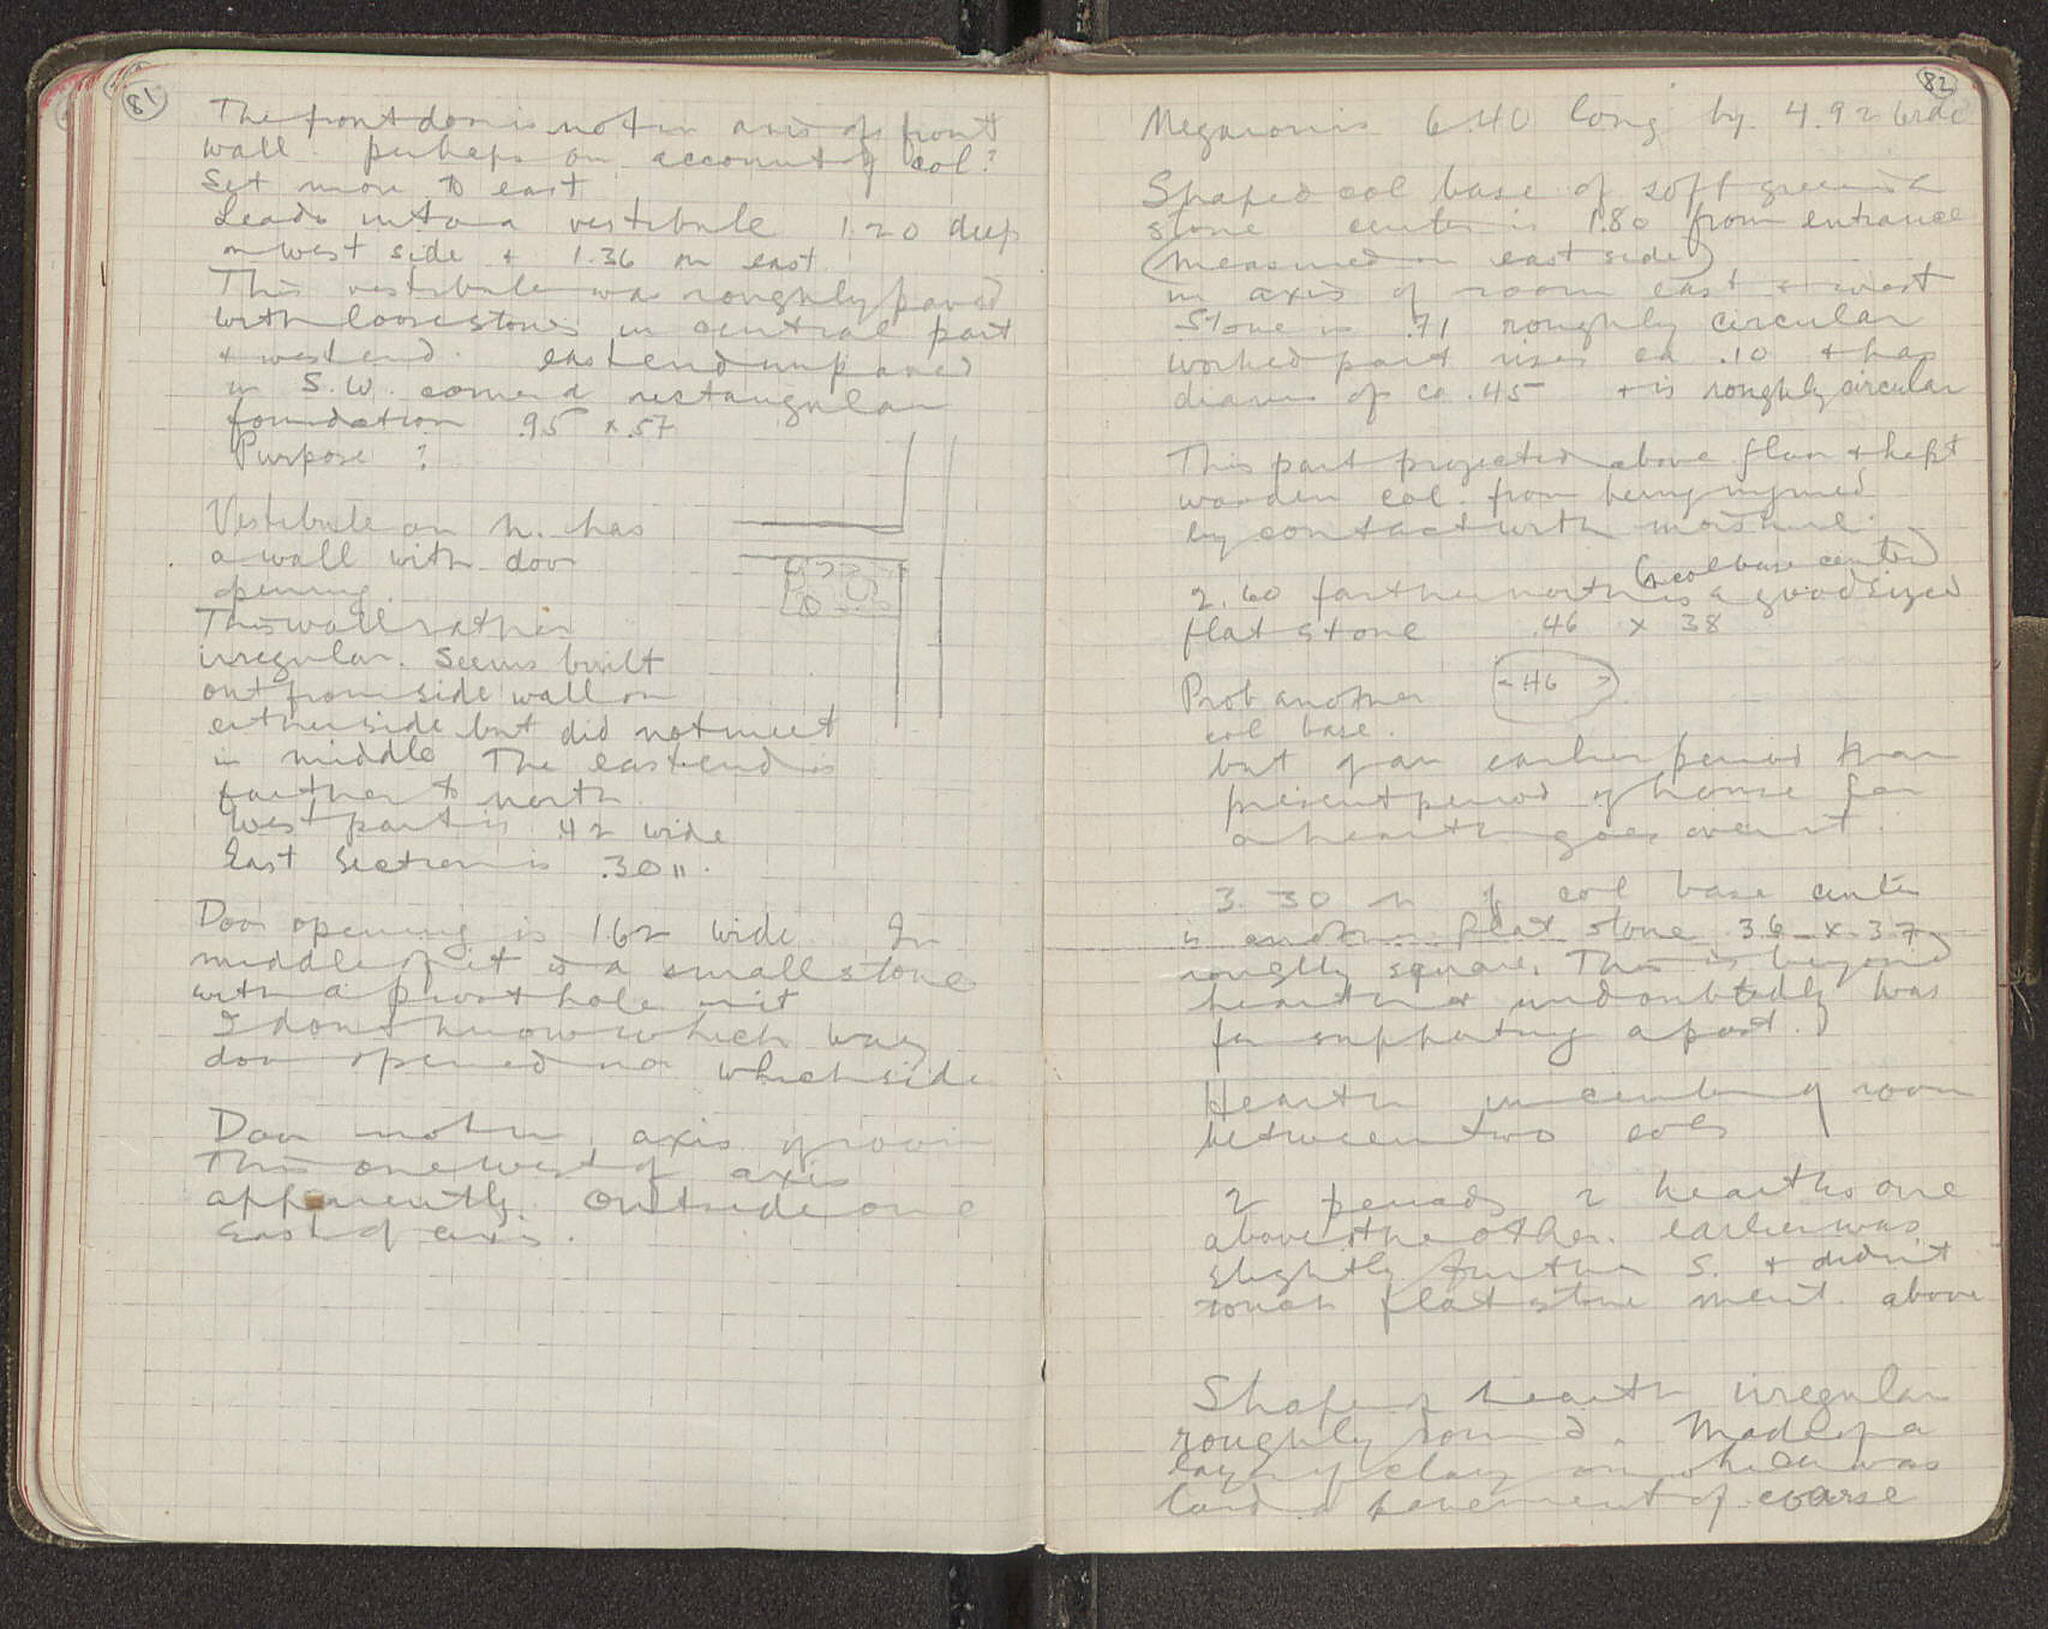 81
The front door is not in axis of front
wall. perhaps on account of col?
Set more to east
Leads into a vestibule 1.20 deep
on west side + 1.36 on east.
This vestibule was roughly paved
with loose stones in central part
+ west end. east end unpaved
in S.W. corner a rectangular
foundation .95 x .57
Purpose ?
Vestibule on N. has
a wall with door
opening.
This wall rather
irregular. Seems built
out from side wall on
either side but did not meet
in middle. The east end is
farther to north.
West part is .42 wide
East section is .30 ".
Door opening is 1.62 wide. In
middle of it is a small stone
with a pivot hole in it
I don't know which way
door opened nor which side
Door not in axis of room
This one west of axis
apparently. Outside one
East of axis.
82
Megaron is 6.40 long by 4.92 wide
Shaped col base of soft greenish
stone center is 1.80 from entrance
(measured on east side)
in axis of room east + west
Stone is .71 roughly circular
worked part rises ca .10 + has
diam of ca .45 + is roughly circular
This part projected above floor + kept
wooden col. from being injured
by contact with moisture.
(col base center)
2.60 farther north is a good sized
flat stone .46 x 38
Prob another
.46
col base.
but of an earlier period than
present period of house for
a hearth goes over it.
3.30 N of col base center
is another flat stone 36 x 37
roughly square. This is beyond
hearth + undoubtedly was
for supporting a post.
Hearth in center of room
between two cols
2 periods 2 hearths one
above the other. earlier was
slightly further S. + didn't
touch flat stone ment. above
Shape of hearth irregular
roughly round. Made of a
layer of clay on which was
laid a pavement of coarse